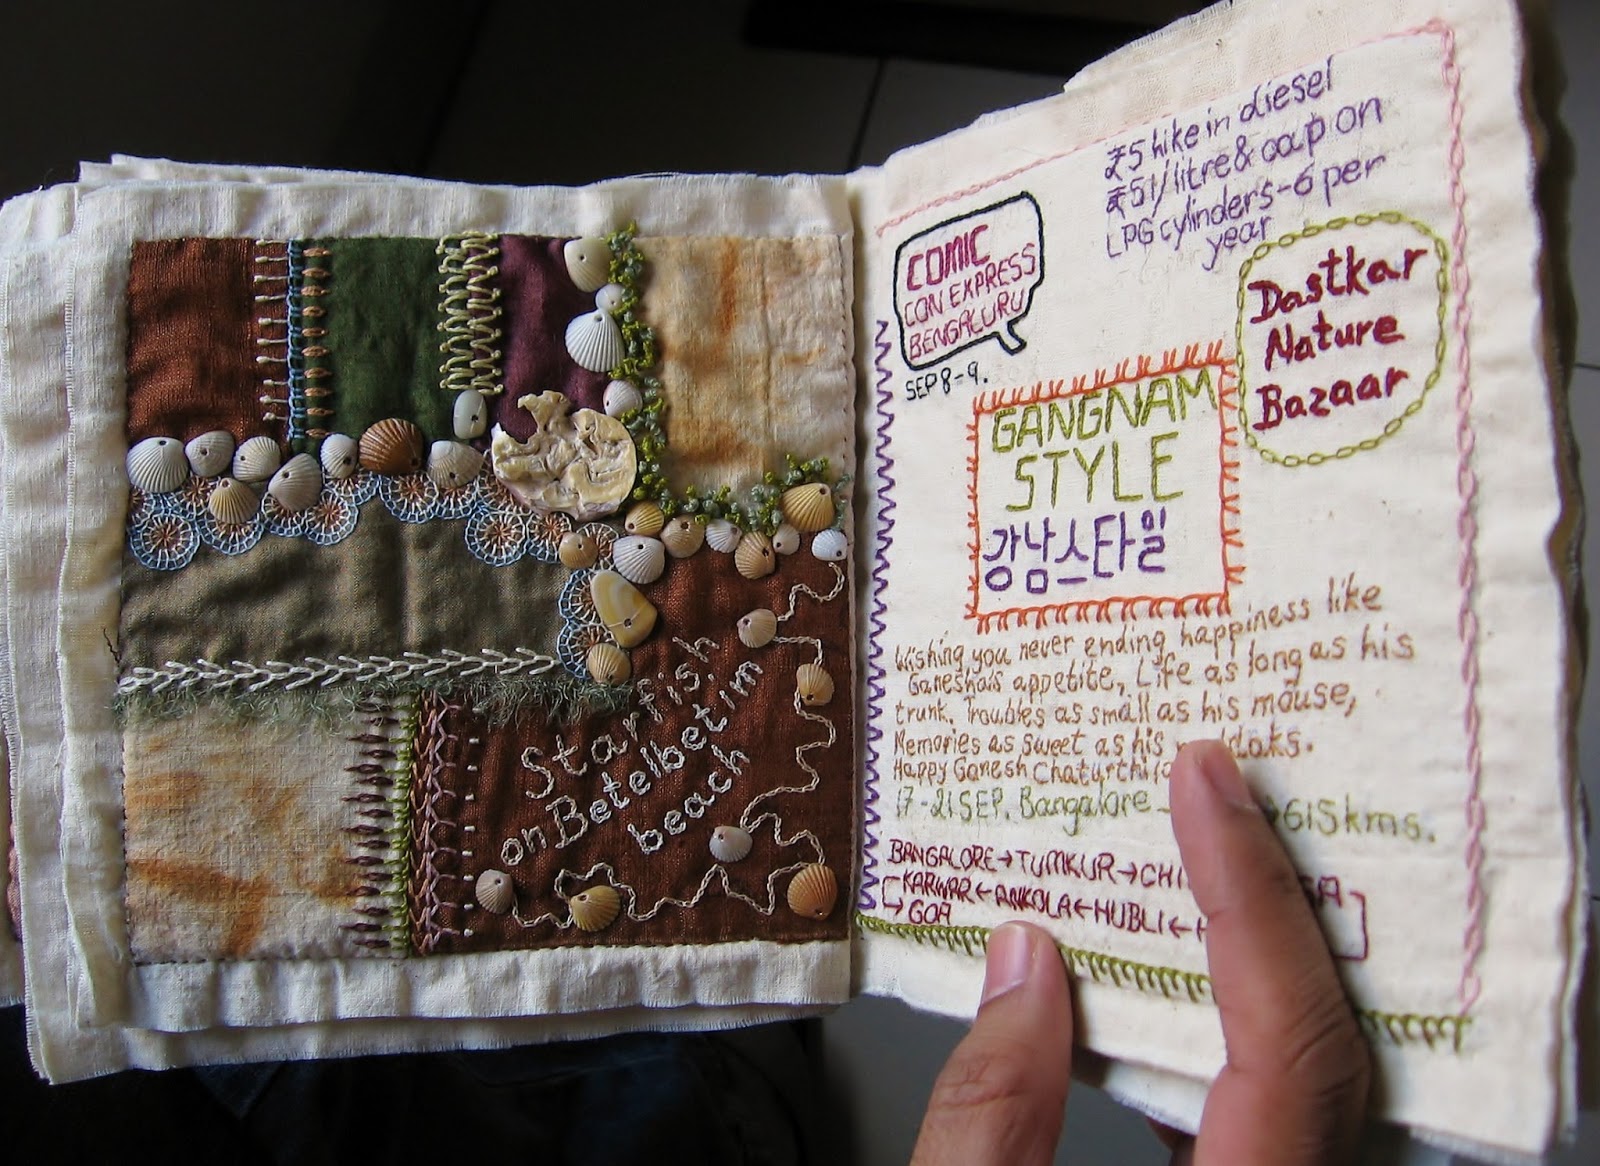 Starfish
on Betelbetim
beach
₹5 hike in diesel
₹51/litre & cap on
LPG cylinders-6 per
year
COMIC
CON EXPRESS
BENGALURU
SEP 8-9.
Dastkar
Nature
Bazaar
GANGNAM
STYLE
강남스타일
Wishing you never ending happiness like
Ganesha's appetite, Life as long as his
trunk, Troubles as small as his mouse,
Memories as sweet as his
Happy Ganesh Chaturthi
17-21 SEP. Bangalore 615kms.
BANGALORE→TUMKUR→
KARWAR←ANKOLA←HUBLI←
→GOA